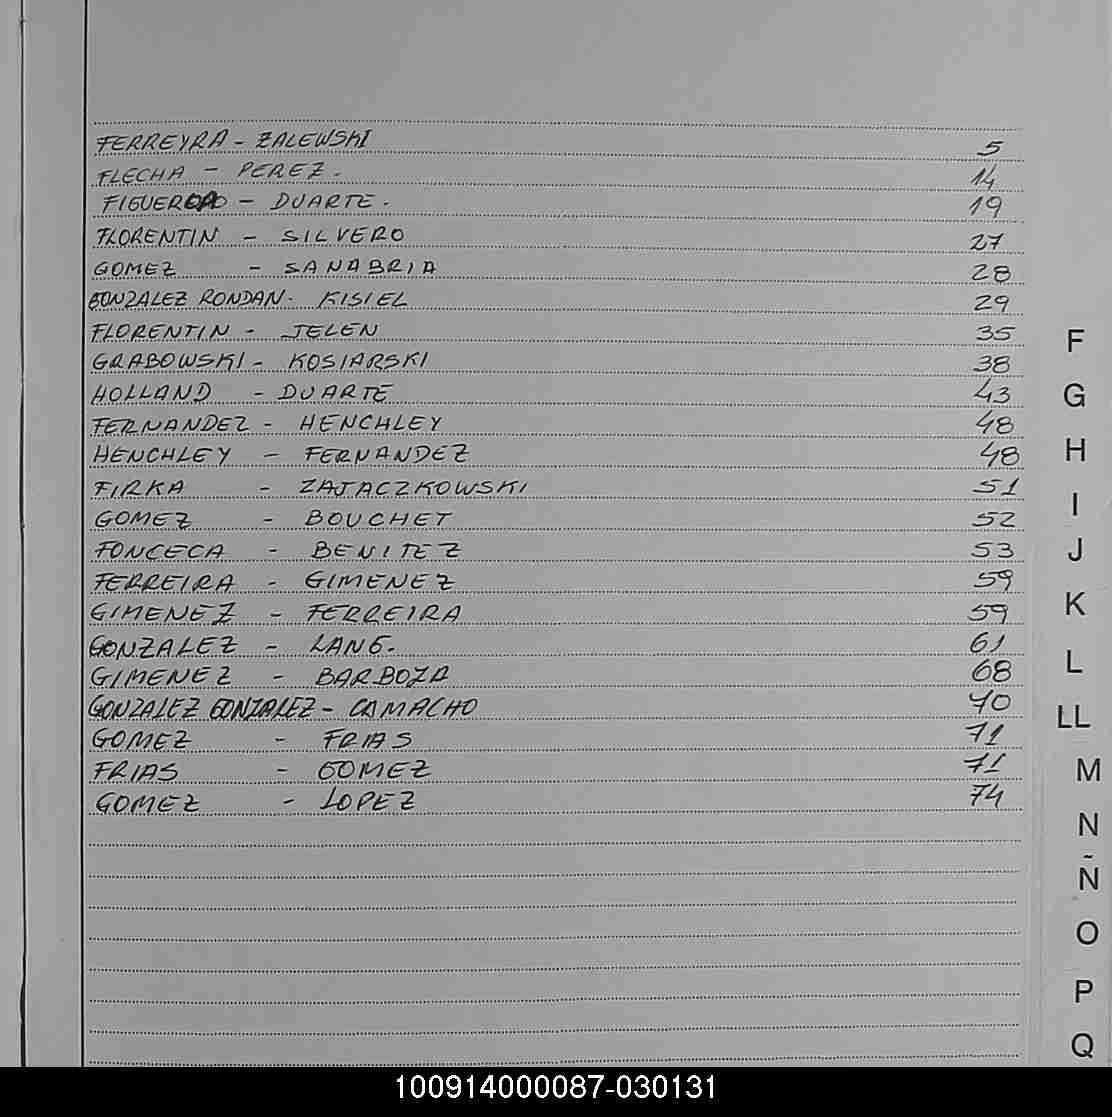 FERREYRA - ZALEWSKI 5
FLECHA - PEREZ. 14
FIGUEROA - DUARTE. 19
FLORENTIN - SILVERO 27
GOMEZ - SANABRIA 28
GONZALEZ RONDAN - KISIEL 29
FLORENTIN - JELEN 35
GRABOWSKI - KOSIARSKI 38
HOLLAND - DUARTE 43
FERNANDEZ - HENCHLEY 48
HENCHLEY - FERNANDEZ 48
FIRKA - ZAJACZKOWSKI 51
GOMEZ - BOUCHET 52
FONCECA - BENITEZ 53
FERREIRA - GIMENEZ 59
GIMENEZ - FERREIRA 59
GONZALEZ - LANG. 61
GIMENEZ - BARBOZA 68
GONZALEZ GONZALEZ - CAMACHO 70
GOMEZ - FRIAS 71
FRIAS - GOMEZ 71
GOMEZ - LOPEZ 74
F
G
H
I
J
K
L
LL
M
N
Ñ
O
P
Q
100914000087-030131